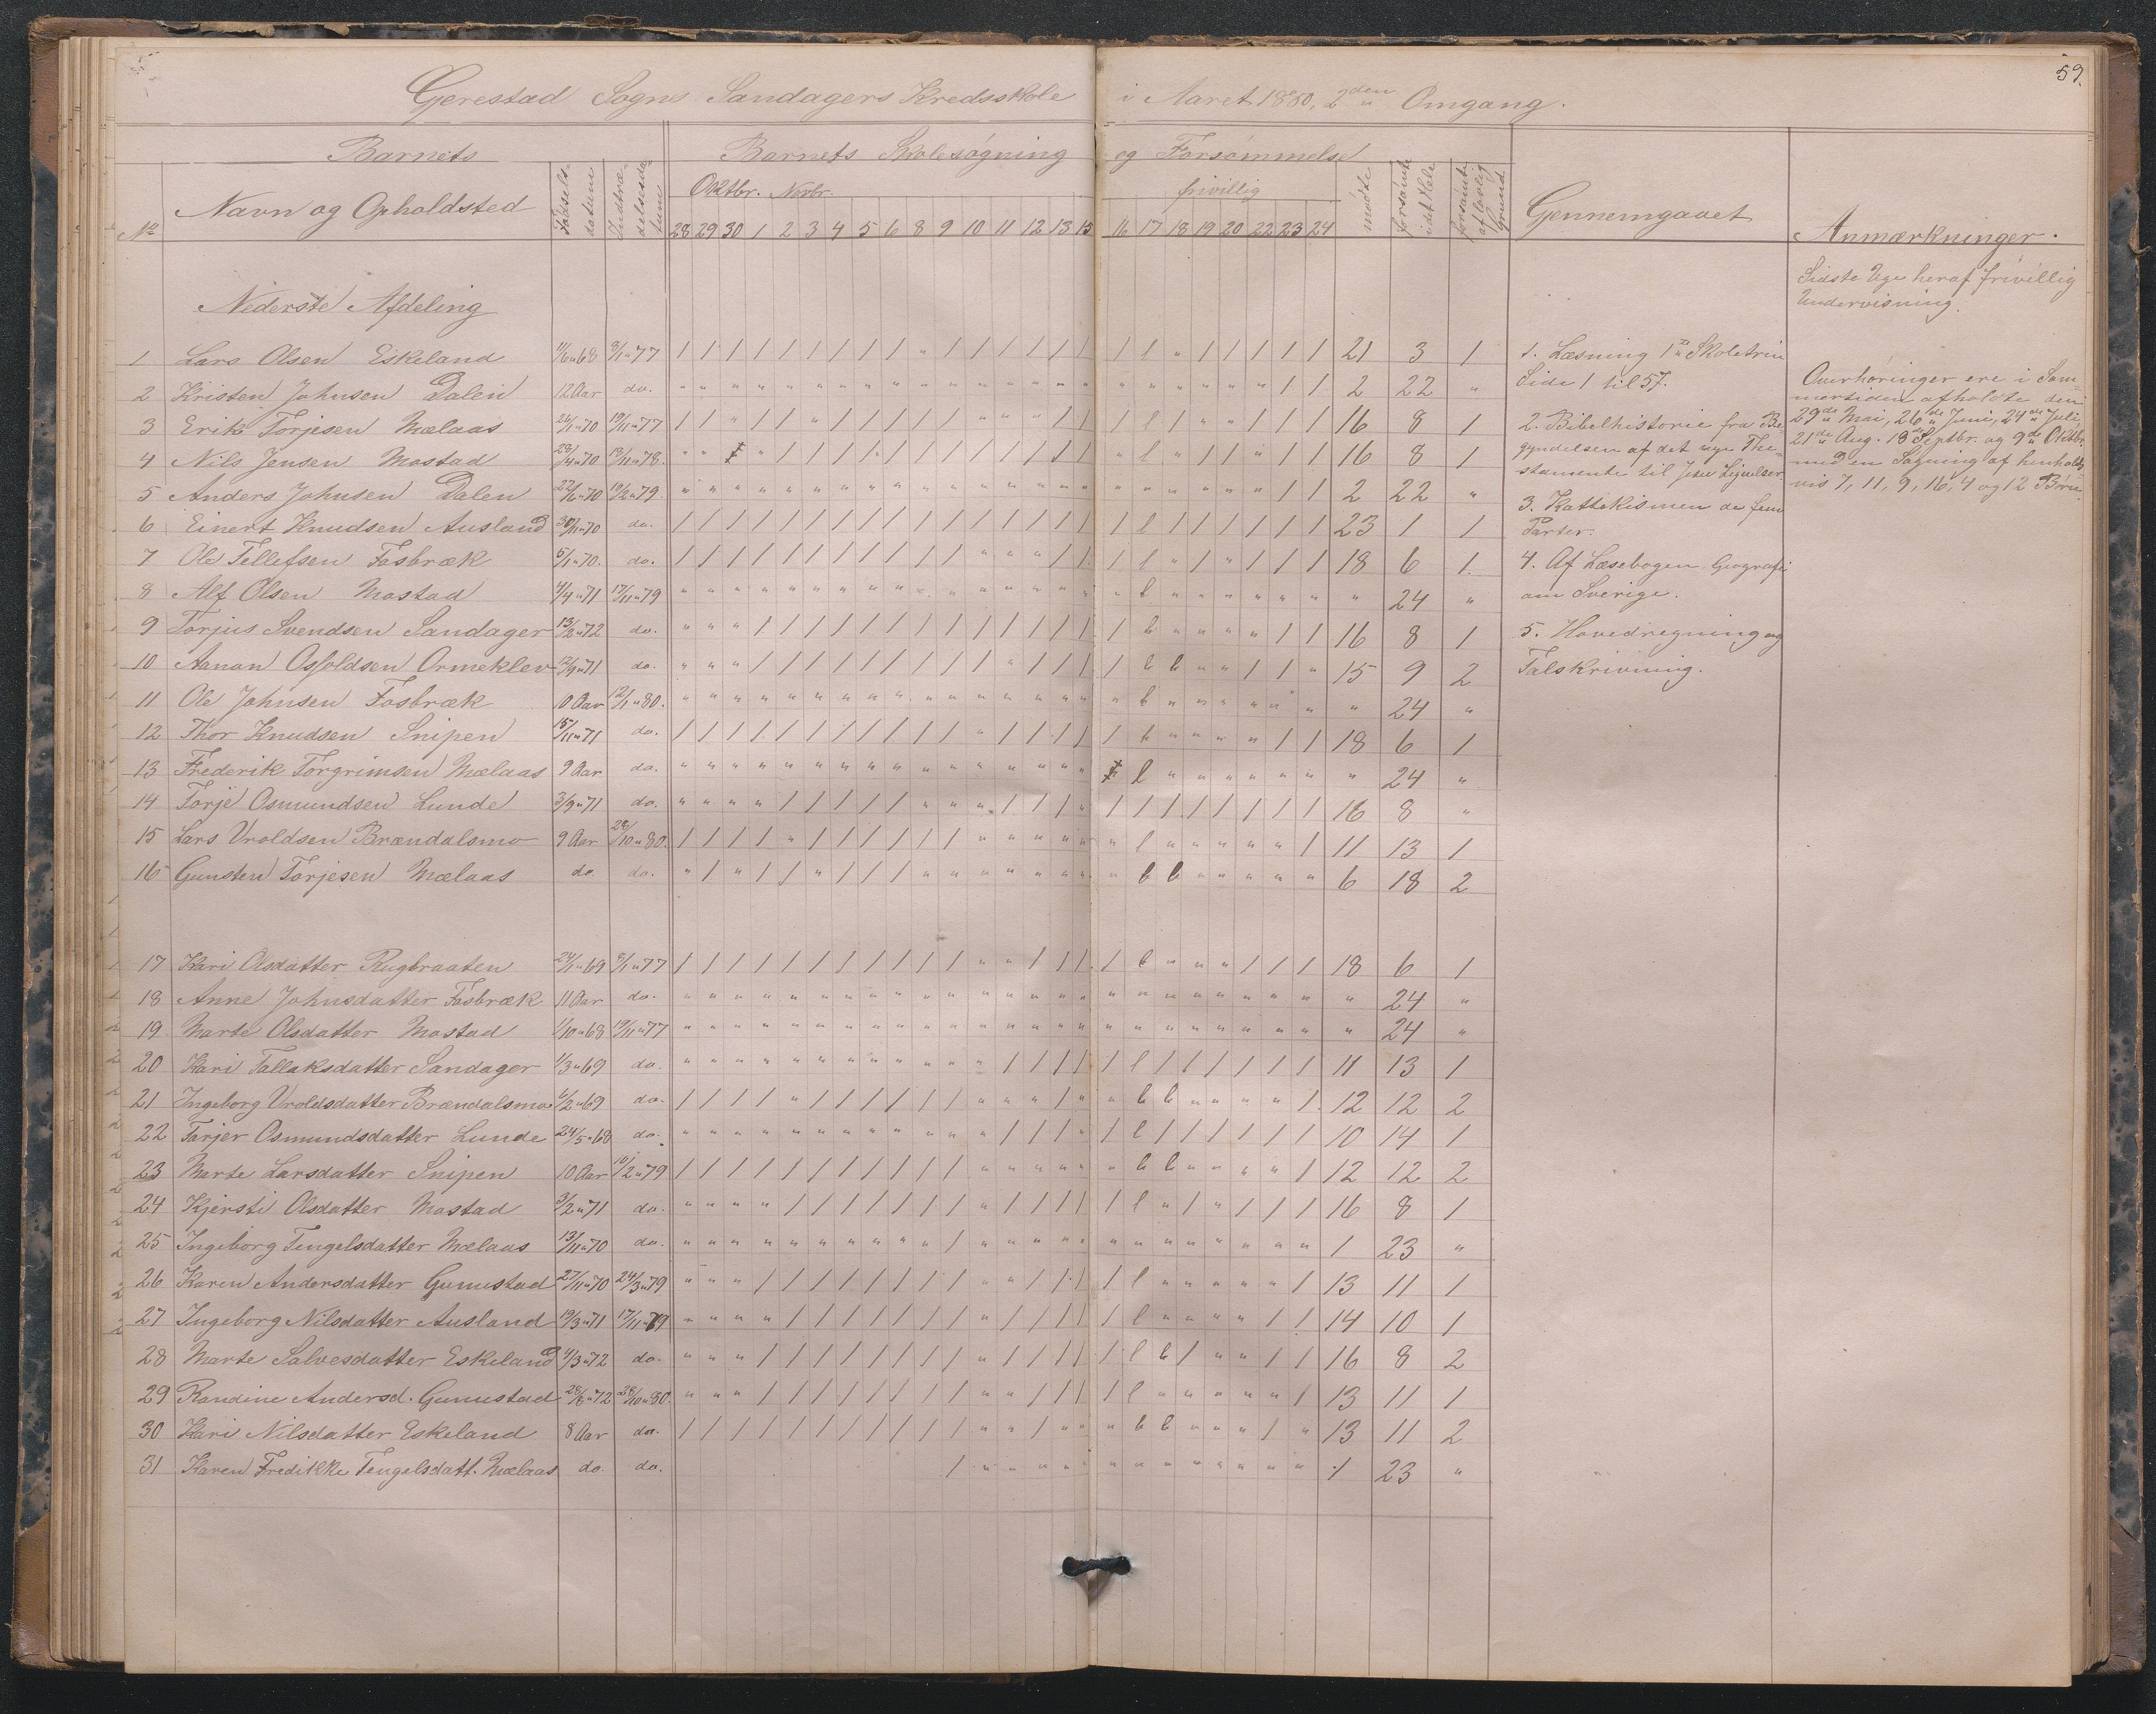 59.
Gerestad Sogns Sandagers Kredsskole i Aaret 1880, 2den Omgang.
Barnets | Barnets Skolesøgning og Forsømmelse
No | Navn og Opholdsted | Fødselsdatum | Indtrædelsesdatum | Oktbr. Novbr. | frivillig | mødte | forsømte i det Hele | forsømte af lovlig Grund | Gennemgaaet | Anmærkninger.
28 29 30 1 2 3 4 5 6 8 9 10 11 12 13 15 16 17 18 19 20 22 23 24
Nederste Afdeling
1 Lars Olsen Eskeland 11/6 " 68 3/1 " 77 / / / / / / / / / " / / / / / / / l " / / / / / 21 3 1
2 Kristen Johnsen Dalen 12 Aar do. " " " " " " " " " " " " " " " " " " " " " " / / 2 22 "
3 Erik Torjesen Mælaas 26/1 " 70 19/11 " 77 16 8 1
4 Nils Jensen Mostad 28/4 " 70 18/11 " 78. 16 8 1
5 Anders Johnsen Dalen 27/6 " 70 19/2 " 79. 2 22 "
6 Einert Knudsen Ausland 30/11 " 70 do. 23 1 1
7 Ole Tellefsen Fosbræk 5/1 " 70. do. 18 6 1.
8 Alf Olsen Mostad 4/4 " 71 17/11 " 79 " 24 "
9 Torjus Svendsen Sandager 13/2 " 72 do. 16 8 1
10 Aanon Osfoldsen Ormeklev 12/9 " 71 do. 15 9 2
11 Ole Johnsen Fosbræk 10 Aar 12/1 " 80. " 24 "
12 Thor Knudsen Snipen 15/11 " 71 do. 18 6 1
13 Frederik Torgrimsen Mælaas 9 Aar do. " 24 "
14 Torje Osmundsen Lunde 3/9 " 71 do. 16 8 "
15 Lars Uroldsen Brændalsmo 9 Aar 28/10 " 80. 11 13 1
16 Gunsten Torjesen Mælaas do do. 6 18 2
17 Kari Olsdatter Rugbraaten 24/1 " 69 8/1 " 77 18 6 1
18 Anne Johnsdatter Fosbræk 11 Aar do. " 24 "
19 Marte Olsdatter Mostad 1/10 " 68 19/11 " 77 " 24 "
20 Kari Tallaksdatter Sandager 1/3 " 69 do. 11 13 1
21 Ingeborg Uroldsdatter Brændalsmo 4/2 " 69 do. 12 12 2
22 Torjer Osmundsdatter Lunde 24/5 " 68 do. 10 14 1
23 Marte Larsdatter Snipen 10 Aar 10/2 " 79 12 12 2
24 Kjersti Olsdatter Mostad 3/2 " 71 do. 16 8 1
25 Ingeborg Tengelsdatter Mælaas 13/11 " 70 do. 1 23 "
26 Karen Andersdatter Gunnstad 27/11 " 70 24/3 " 79 13 11 1
27 Ingeborg Nilsdatter Ausland 19/3 " 71 17/11 " 79 14 10 1
28 Marte Salvesdatter Eskeland 4/3 " 72 do. 16 8 2
29 Randine Andersd. Gunnstad 28/8 " 72 28/10 " 80. 13 11 1
30 Kari Nilsdatter Eskeland 8 Aar do. 13 11 2
31 Karen Fredikke Tengelsdatt. Mælaas do. do. 1 23 "
1. Læsning 1ste Skoletrin
Side 1 til 57.
2. Bibelhistorie fra Be-
gyndelsen af det nye The-
stamente til Jesu Lignelser
3. Kattekismen de fem
Parter.
4. Af Læsebogen Geografi
om Sverige.
5. Hovedregning og
Talskrivning.
Sidste Uge heraf frivillig
Undervisning.
Overhøringer ere i Som-
mertiden afholdte den
29de Mai, 26de Juni, 24de Juli,
21de Aug. 18de Septbr. og 9de Oktbr.
med en Søgning af henholds-
vis 7, 11, 9, 16, 4 og 12 Børn.